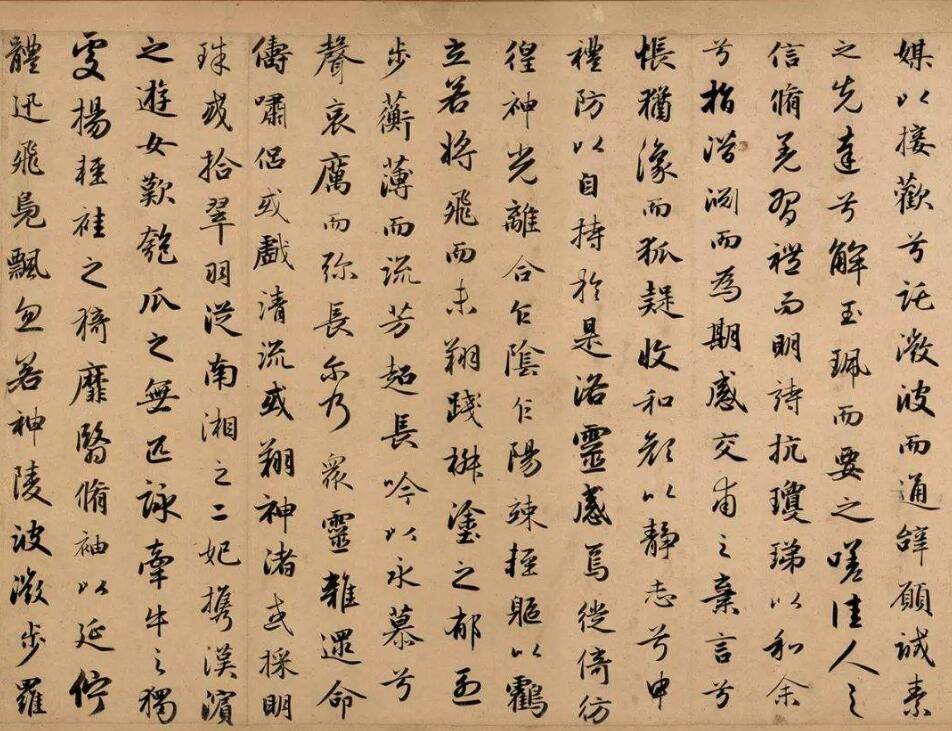 媒以接歡兮託微波而通辭願誠素
之先達兮解玉珮而要之嗟佳人之
信脩羌習禮而明詩抗瓊珶以和余
兮指潛淵而為期感交甫之棄言兮
悵猶豫而狐疑收和顏以靜志兮申
禮防以自持於是洛靈感焉徙倚彷
徨神光離合乍陰乍陽竦輕軀以鶴
立若將飛而未翔踐椒塗之郁烈
步蘅薄而流芳超長吟以永慕兮
聲哀厲而彌長爾乃眾靈雜遝命
儔嘯侶或戲清流或翔神渚或採明
珠或拾翠羽從南湘之二妃攜漢濱
之遊女歎匏瓜之無匹詠牽牛之獨
處揚輕袿之猗靡翳脩袖以延佇
體迅飛鳧飄忽若神陵波微步羅